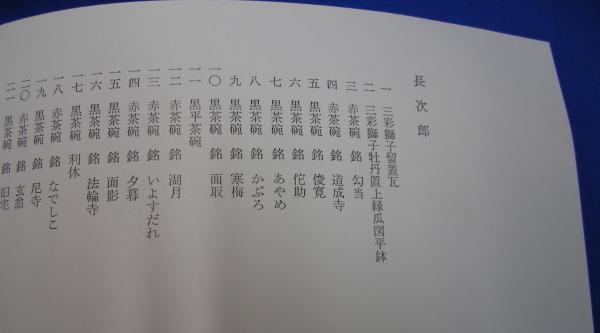 長次郎
一 三彩獅子留蓋瓦
二 三彩獅子牡丹置上縁瓜図平鉢
三 赤茶碗 銘 勾当
四 赤茶碗 銘 道成寺
五 黒茶碗 銘 俊寛
六 黒茶碗 銘 佗助
七 黒茶碗 銘 あやめ
八 黒茶碗 銘 かぶろ
九 黒茶碗 銘 寒梅
一〇 黒茶碗 銘 面取
一一 黒平茶碗
一二 赤茶碗 銘 湖月
一三 赤茶碗 銘 いよすだれ
一四 赤茶碗 銘 夕暮
一五 黒茶碗 銘 面影
一六 黒茶碗 銘 法輪寺
一七 黒茶碗 利休
一八 赤茶碗 銘 なでしこ
一九 黒茶碗 銘 尼寺
二〇 赤茶碗 銘 玄翁
二一 黒茶碗 銘 旧宅